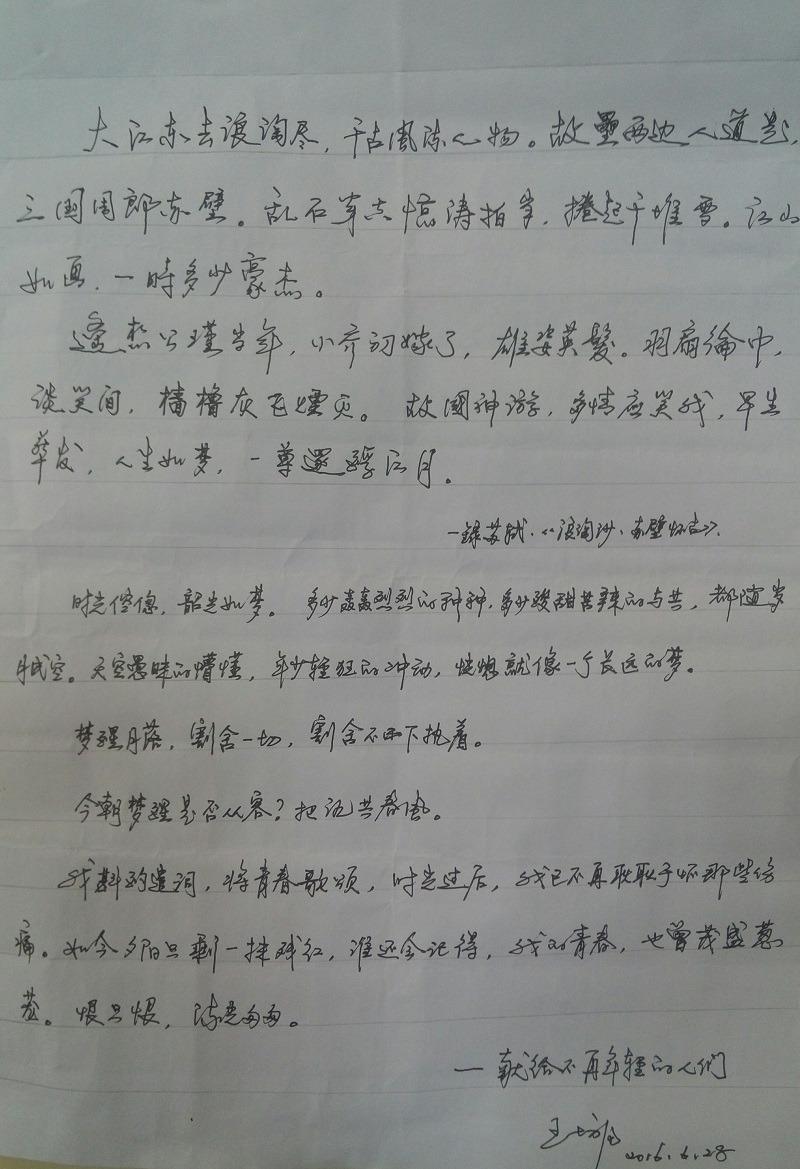 大江东去浪淘尽，千古風流人物。故壘西边人道是，
三國周郎赤壁。乱石穿空惊涛拍岸，捲起千堆雪。江山
如画，一時多少豪杰。
遥想公瑾当年，小乔初嫁了，雄姿英髮。羽扇綸巾，
谈笑间，檣櫓灰飞煙灭。故國神游，多情应笑我，早生
華发，人生如梦，一尊還酹江月。
—錄苏轼.《浪淘沙·赤壁怀古》.
时光倥偬，韶光如梦。多少轰轰烈烈的种种，多少酸甜苦辣的与共，都随岁
月成空。天空愚昧的懵懂，年少轻狂的冲动，恍惚就像一个长远的梦。
梦醒月落，割舍一切，割舍不下执着。
今朝梦醒是否从容？把酒共春風。
我斟酌造词，将青春歌颂，时光过后，我已不再耿耿于怀那些伤
痛。如今夕阳只剩一抹残红，谁还会记得，我的青春，也曾茂盛葱
茏。恨只恨，流光匆匆。
—献给不再年轻的人们
王
2016.6.28